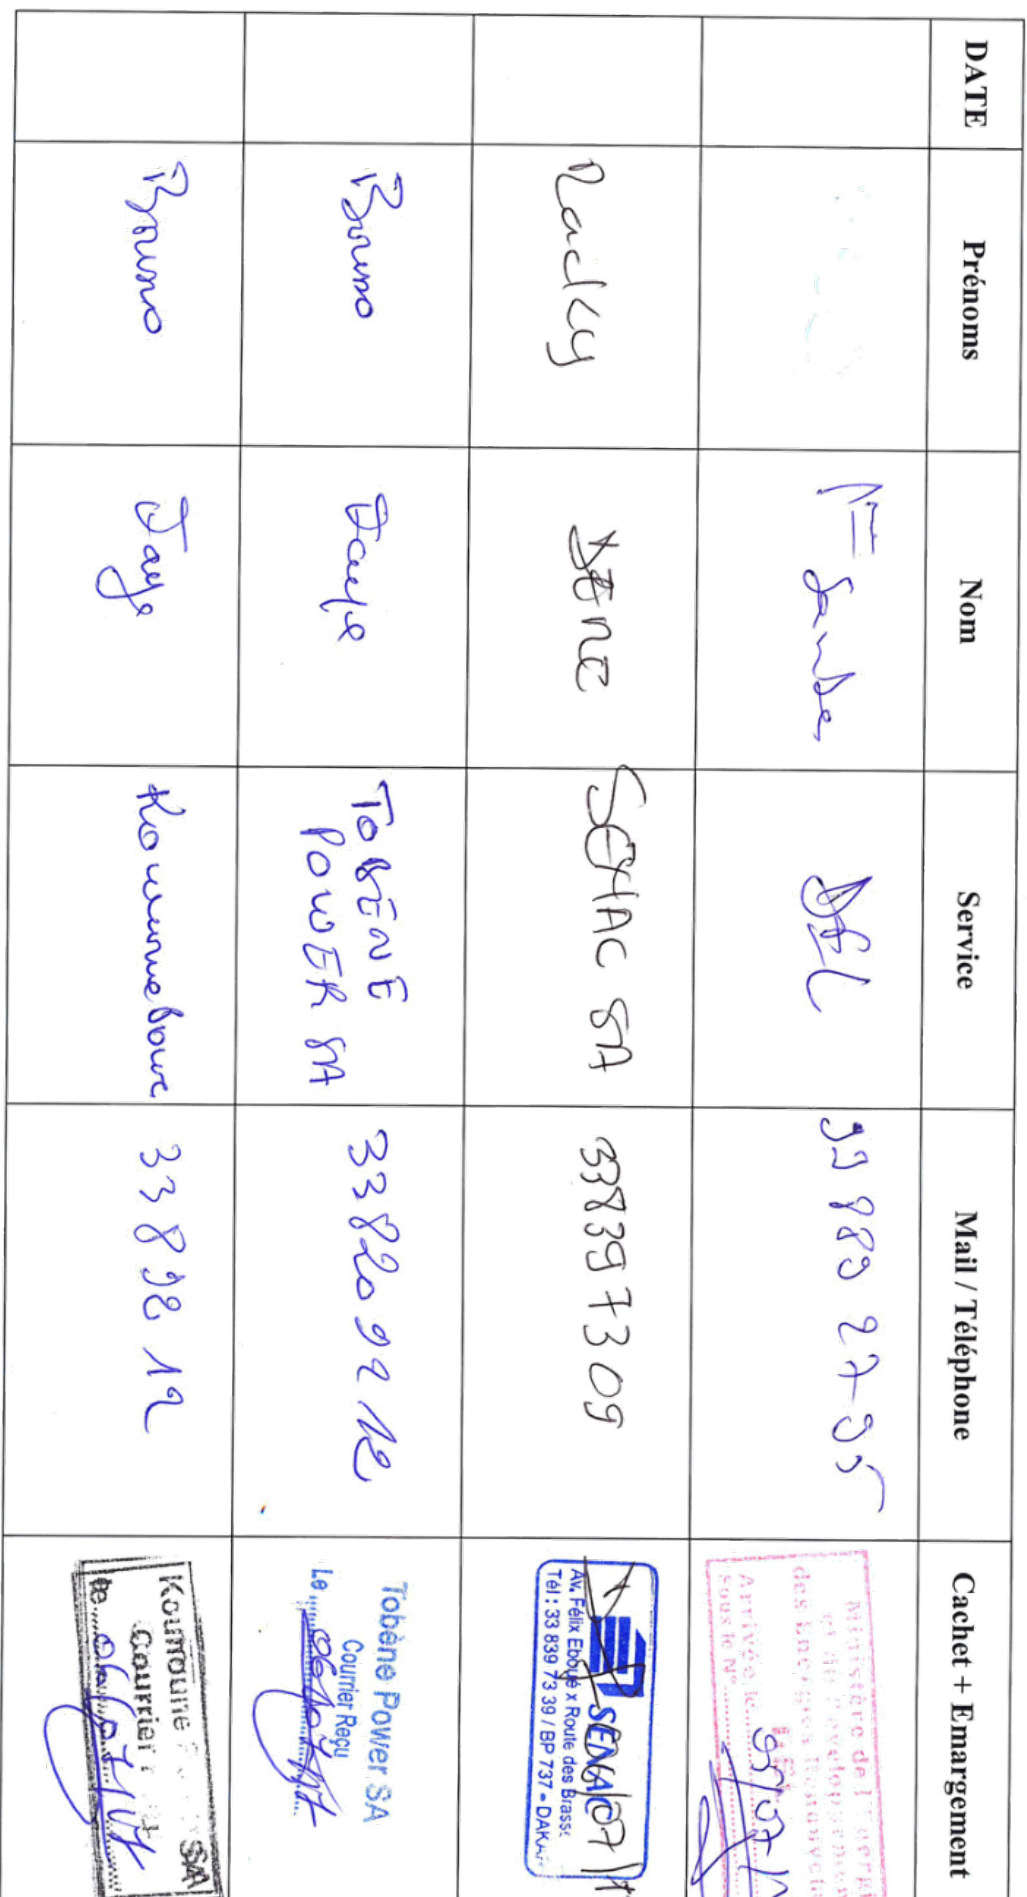 DATE Prénoms Nom Service Mail / Téléphone Cachet + Emargement
DEL 33 889 27 95
Ministère de l'énergie
et du Développement
des Energies Renouvelables
Arrivée le 05/07/
sous le N°
Macky SENAC SA 338397309
SENAC
06/07/
Av. Félix Eboué x Route des Brass
Tél : 33 839 73 39 / BP 737 - DAKAR
Bruno Faye TOBÈNE
POWER SA
33820 92 12
Tobène Power SA
Courrier Reçu
Le 06/07/17
Bruno Faye 338 92 12
Koumoune SA
Courrier
le 06/07/17